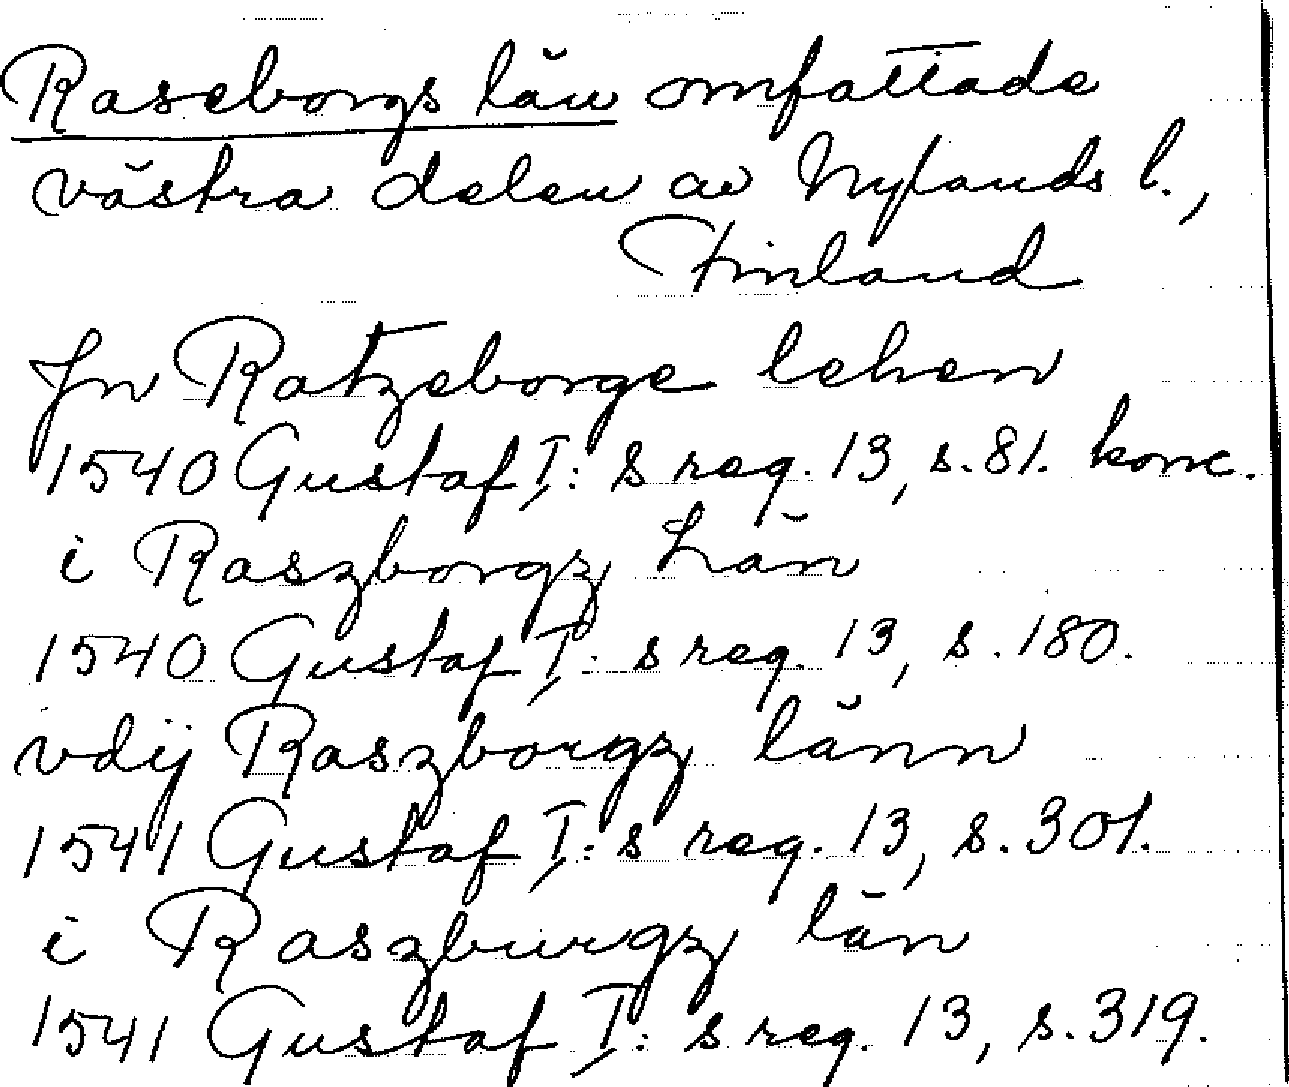 Raseborgs län omfattade
västra delen av Nylands l.,
Finland
Jn Ratzeborge lehen
1540 Gustaf I: s reg. 13, s. 81. konc.
i Raszborgz Län
1540 Gustaf I: s reg. 13, s. 180.
vdij Raszborgz länn
1541 Gustaf I: s reg. 13, s. 301.
i Raszburgz län
1541 Gustaf I: s reg. 13, s. 319.